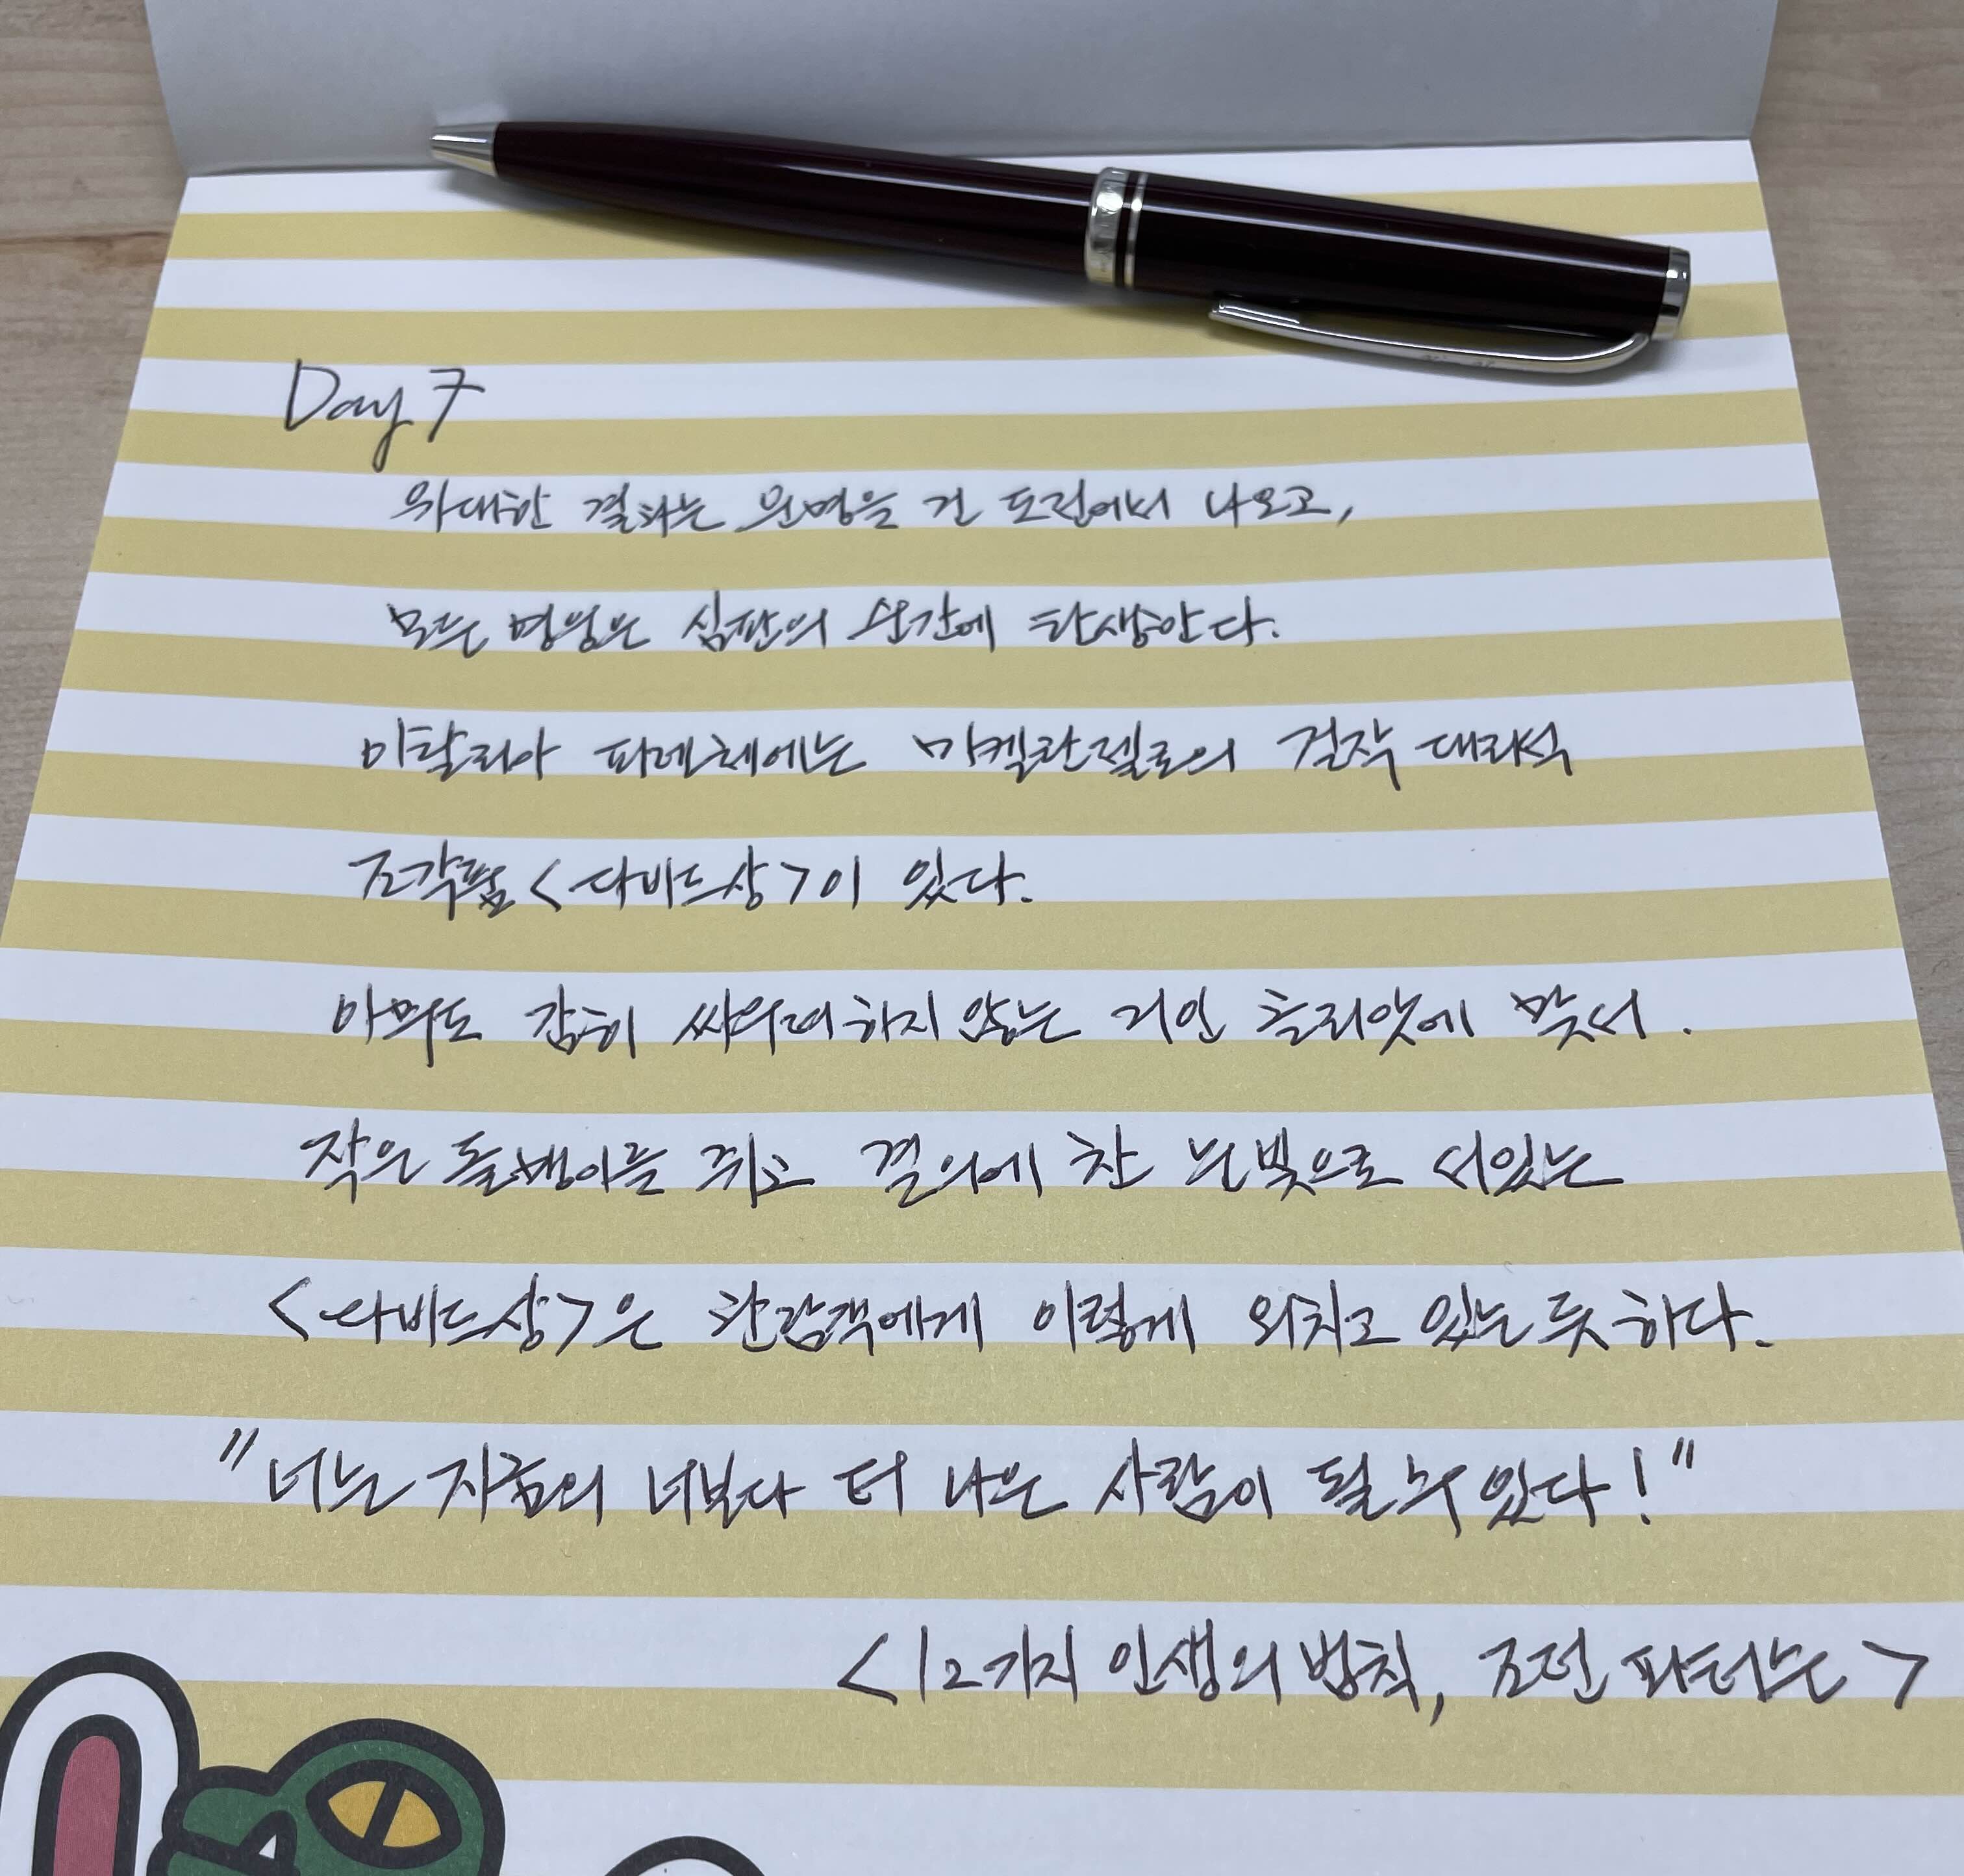 Day 7
위대한 결과는 운명을 건 도전에서 나오고,
모든 영웅은 심판의 순간에 탄생한다.
이탈리아 피렌체에는 미켈란젤로의 걸작 대리석
조각품 <다비드상>이 있다.
아무도 감히 싸우려 하지 않는 거인 골리앗에 맞서.
작은 돌맹이를 쥐고 결의에 찬 눈빛으로 서있는
<다비드상>은 관람객에게 이렇게 외치고 있는 듯 하다.
"너는 지금의 너보다 더 나은 사람이 될 수 있다!"
<12가지 인생의 법칙, 조던 피터슨>